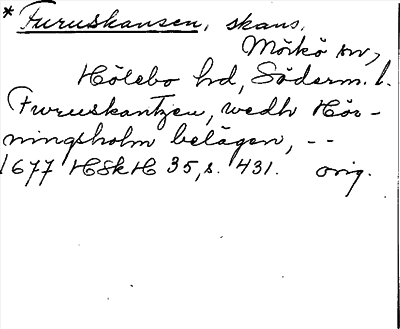 * Furuskansen, skans,
Mörkö sn,
Hölebo hd, Söderm. l.
Furuskantzen, wedh Hör-
ningsholm belägen, --
1677 HSkH 35, s. 431. orig.